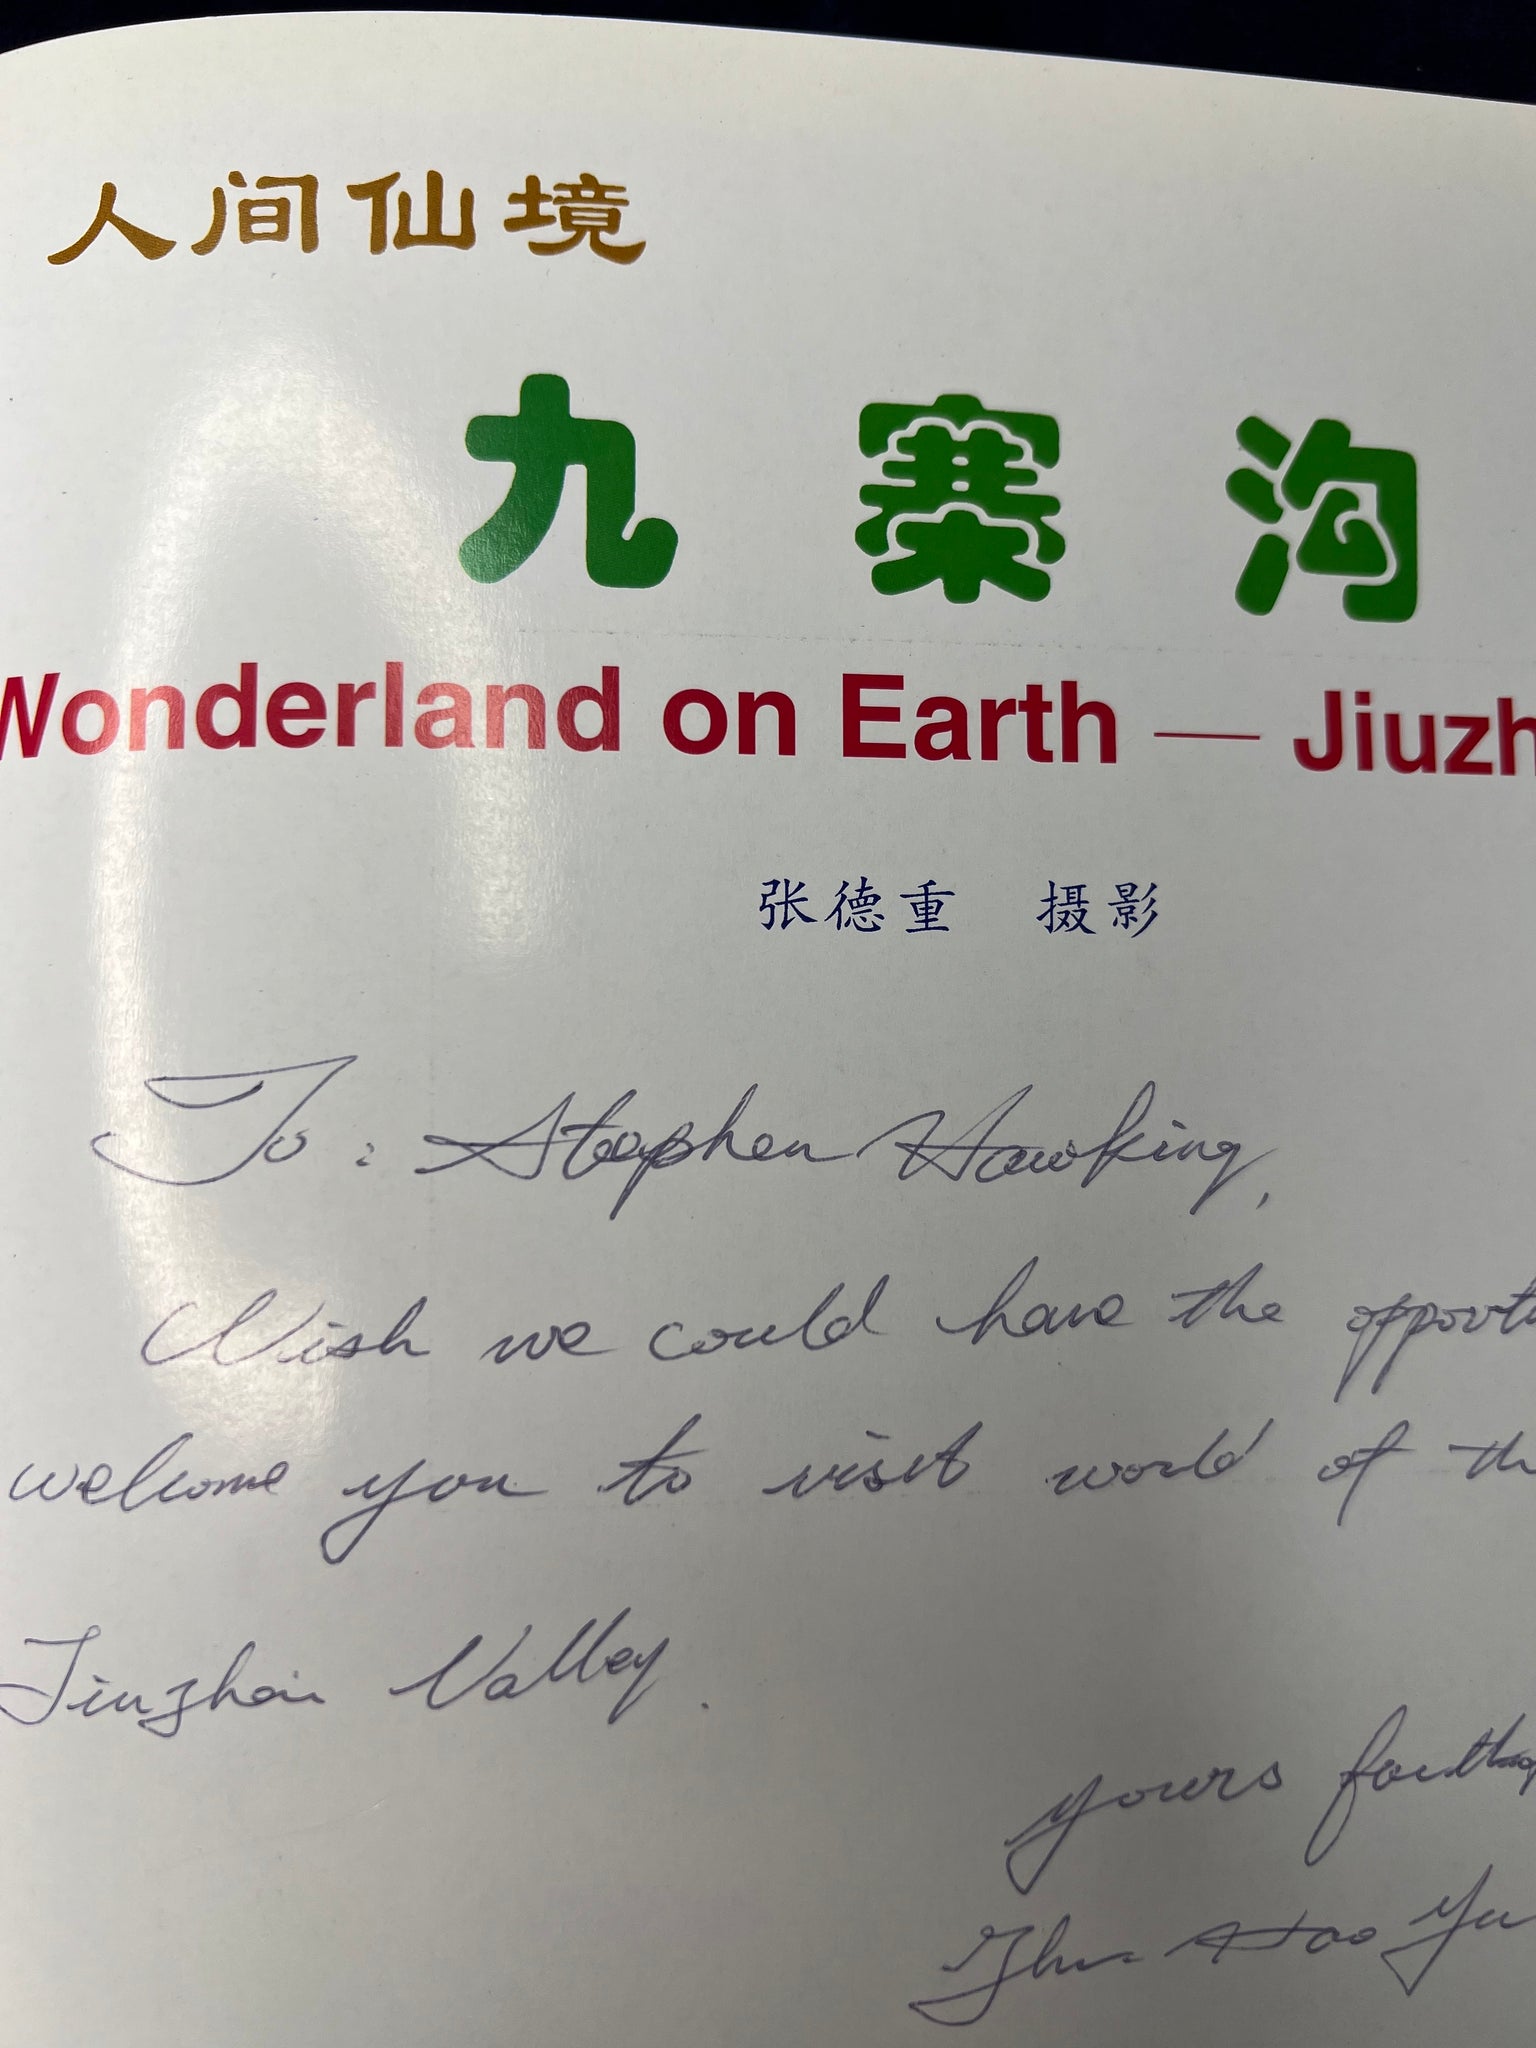 人间仙境
九寨沟
Wonderland on Earth — Jiuzh
张德重 摄影
To: Stephen Hawking,
Wish we could have the opportu
welcome you to visit world of th
Jiuzhai Valley.
yours faith
Zhu Hao Yu